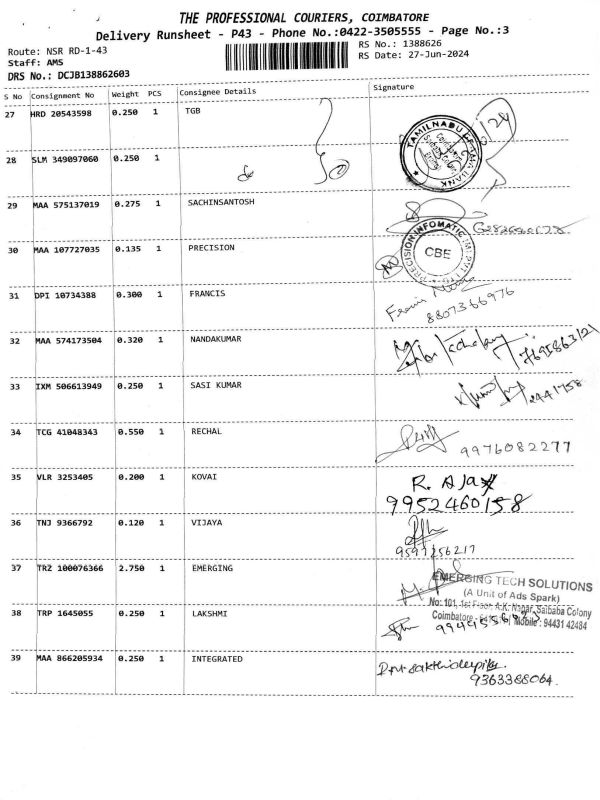 THE PROFESSIONAL COURIERS, COIMBATORE
Delivery Runsheet - P43 - Phone No.:0422-3505555 - Page No.:3
Route: NSR RD-1-43
RS No.: 1388626
Staff: AMS
RS Date: 27-Jun-2024
DRS No.: DCJB138862603
S No Consignment No Weight PCS Consignee Details Signature
27 HRD 20543598 0.250 1 TGB
28 SLM 349097060 0.250 1
TAMILNADU
BANK
29 MAA 575137019 0.275 1 SACHINSANTOSH
30 MAA 107727035 0.135 1 PRECISION
PRECISION INFOMATIC
CBE
31 DPI 10734388 0.300 1 FRANCIS
8807366976
32 MAA 574173504 0.320 1 NANDAKUMAR
33 IXM 506613949 0.250 1 SASI KUMAR
34 TCG 41048343 0.550 1 RECHAL
9976082277
35 VLR 3253405 0.200 1 KOVAI
R. Ajay
9952460158
36 TNJ 9366792 0.120 1 VIJAYA
9597256217
37 TRZ 100076366 2.750 1 EMERGING
EMERGING TECH SOLUTIONS
(A Unit of Ads Spark)
No: 101, 1st Floor, A.K. Nagar, Saibaba Colony
Coimbatore Mobile : 94431 42484
38 TRP 1645055 0.250 1 LAKSHMI
39 MAA 866205934 0.250 1 INTEGRATED
9363388064.